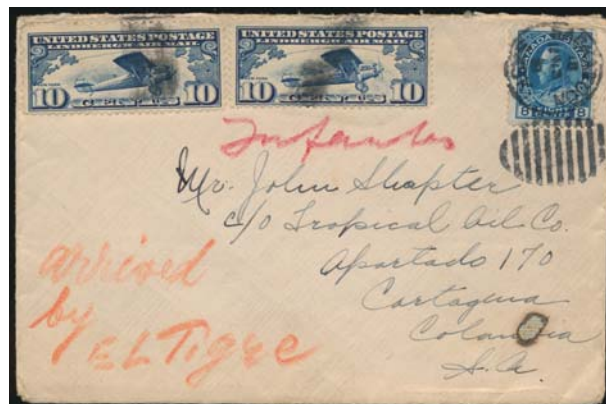 UNITED STATES POSTAGE
LINDBERGH AIR MAIL
10 CENTS 10
UNITED STATES POSTAGE
LINDBERGH AIR MAIL
10 CENTS 10
CANADA POSTAGE
8 8
Infantas
Mr. John Shapter
c/o Tropical Oil Co.
Apartado 170
Cartagena
Colombia
S.A.
arrived
by
EL Tigre